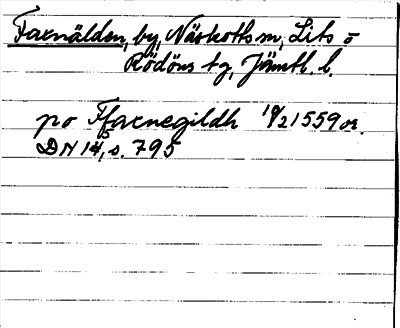 Faxnälden, by, Näskotts sn, Lits o
Rödöns tg, Jämtl. l.
po Ffaxnegildh 18/2 1559 or.
DN 14, s. 795